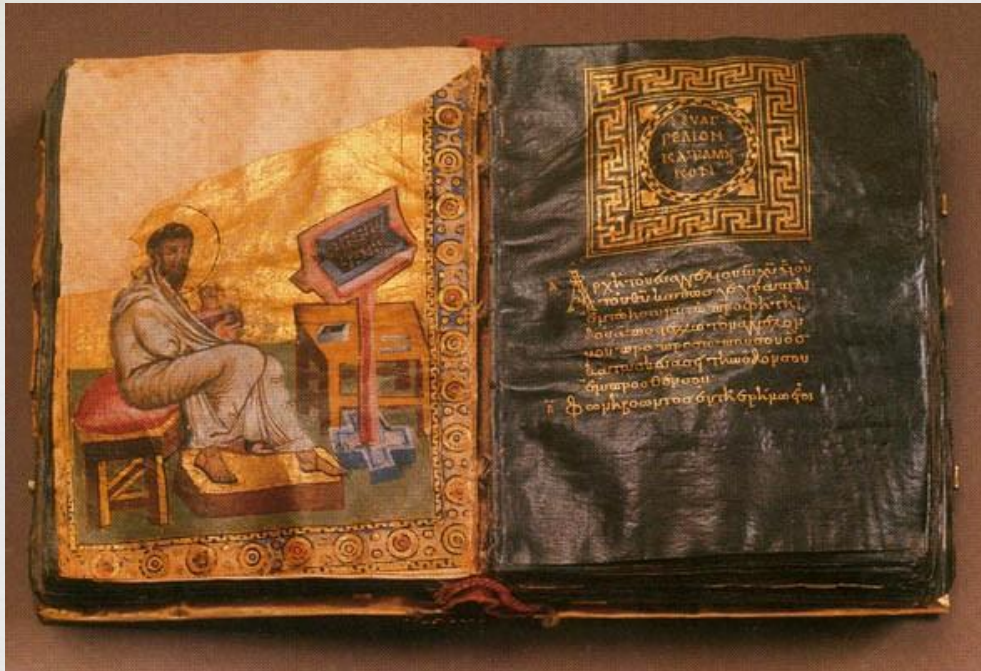 ΕΥΑΓ
ΓΕΛΙΟΝ
ΚΑΤΑ ΜΑΡ
ΚΟΝ
Ἀρχὴ τοῦ εὐαγγελίου ιυ χυ υἱοῦ
τοῦ θυ καθὼς γέγραπται
ἐν τῶ προφήτη ἰ
δοὺ ἀποστέλλω τὸν ἄγγελον
μου πρὸ προσώπου σου ὃς
κατασκευάσει τὴν ὁδόν σου
ἔμπροσθέν σου
Φωνὴ βοῶντος ἐν τῆ ἐρήμω ἑτοι